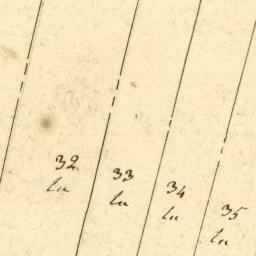 32
lu
33
lu
34
lu
35
lu